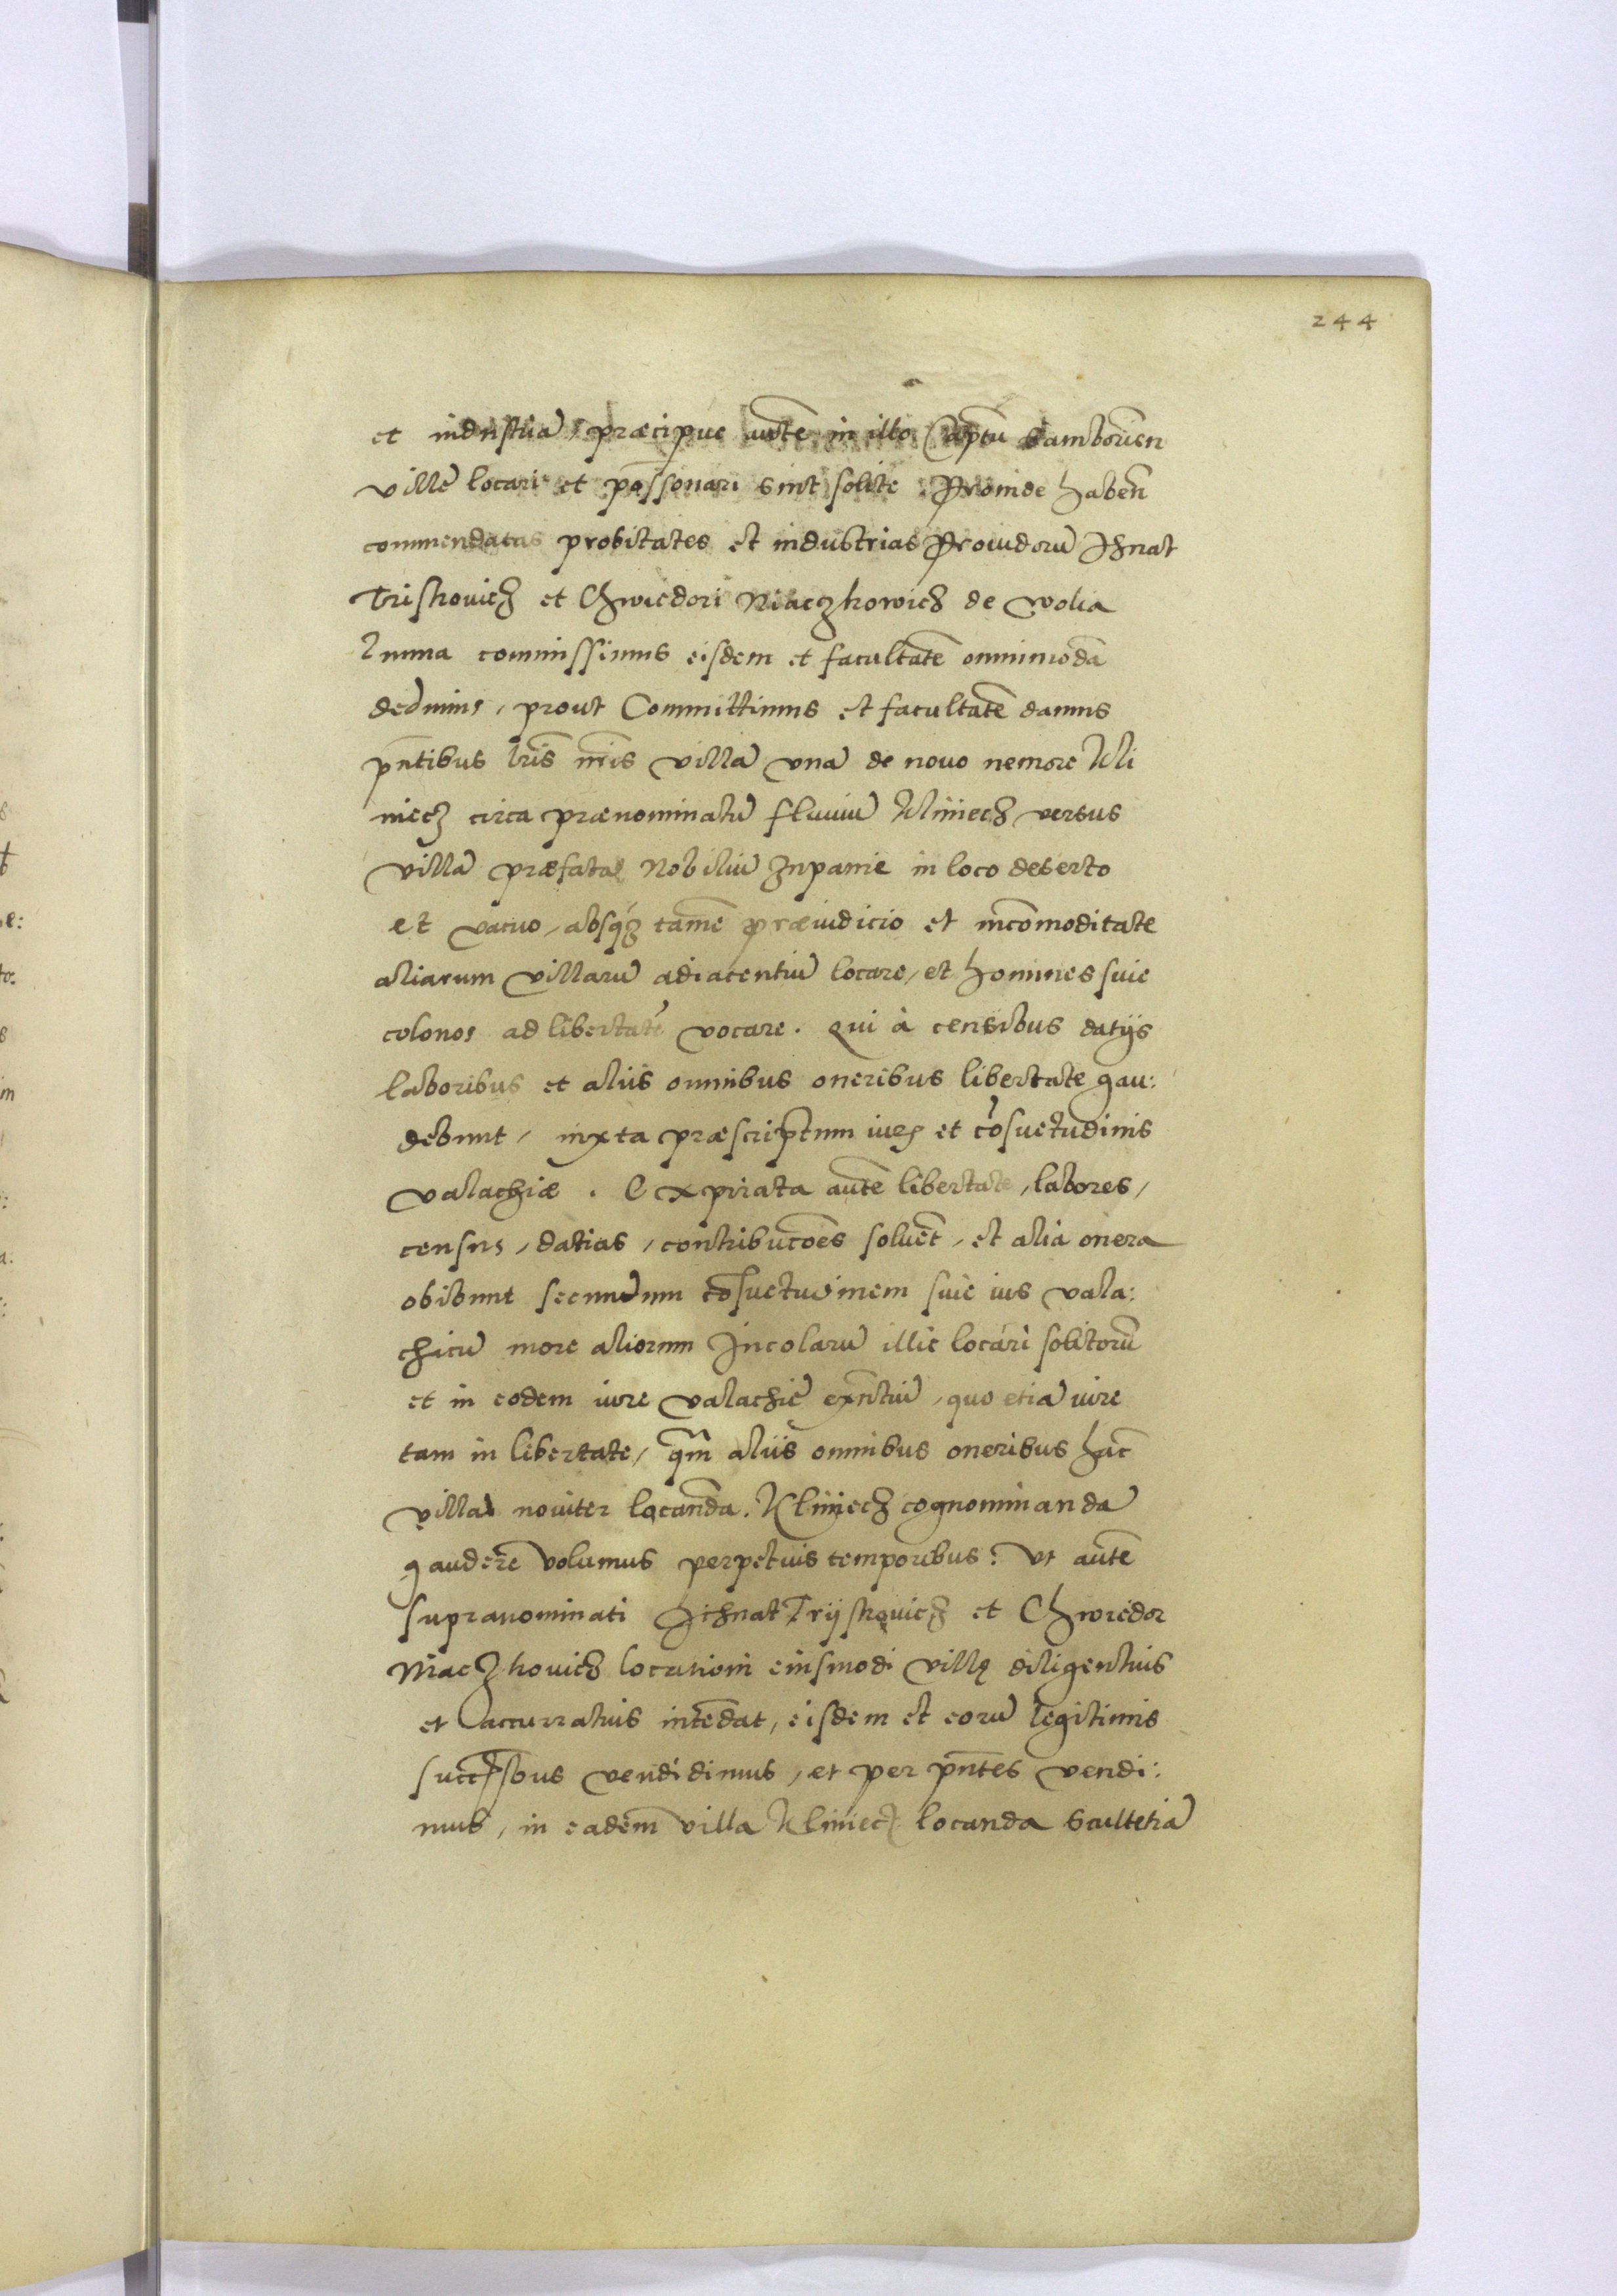 244
et industriã, præcipue autẽ in illo Captu Samborien
ville locari et possonari sint solite. Proinde habeñ
commendatas probitates et industrias Prouidorũ Ihnat
Triskovicz et Chwiedori Niaczkowicz de Wolia
commissimus eisdem et facultatẽ omnimodã
dedimus, prout Committimus et facultatẽ damus
pñtibus lris nris villã vnã de nouo nemore Kli
niecz circa prænominatũ fluuiũ Kliniecz versus
villã præfatã Nobiliũ Zupanie in loco deserto
et vacuo, absq; tamẽ præiudicio et incõmoditate
aliarum villarũ adiacentiũ locare, et homines siue
colonos ad libertatẽ vocare. Qui à censibus datijs
laboribus et aliis omnibus oneribus libertate gau:
debunt, iuxta præscriptum iuris et cõsuetudinis
Valachiæ. Expirata autẽ libertate, labores,
census, datias, contributões soluẽt, et alia onera
obibunt secundum cõsuetudinem siue ius vala:
chicũ more aliorum Incolarũ illic locari solitorũ
et in eodem iure Valachie exñtiũ, quo etiã iure
tam in libertate, qm̃ aliis omnibus oneribus hãc
villã noviter locandã. Kliniecz cognominandã
gaudere volumus perpetuis temporibus. Vt autẽ
supranominati Ichnat Trijskovicz et Chwiedor
Niaczkovicz locationi eiusmodi villę diligentius
et accurratius intẽdãt, eisdem et eorũ legitimis
succẽsorib9 vendidimus, et per pñtes vendi:
mus, in eadem villa Kliniecz locanda Scultetiã